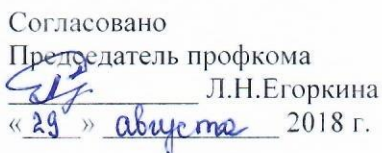 Согласовано
Председатель профкома
Л.Н.Егоркина
«29» августа 2018 г.